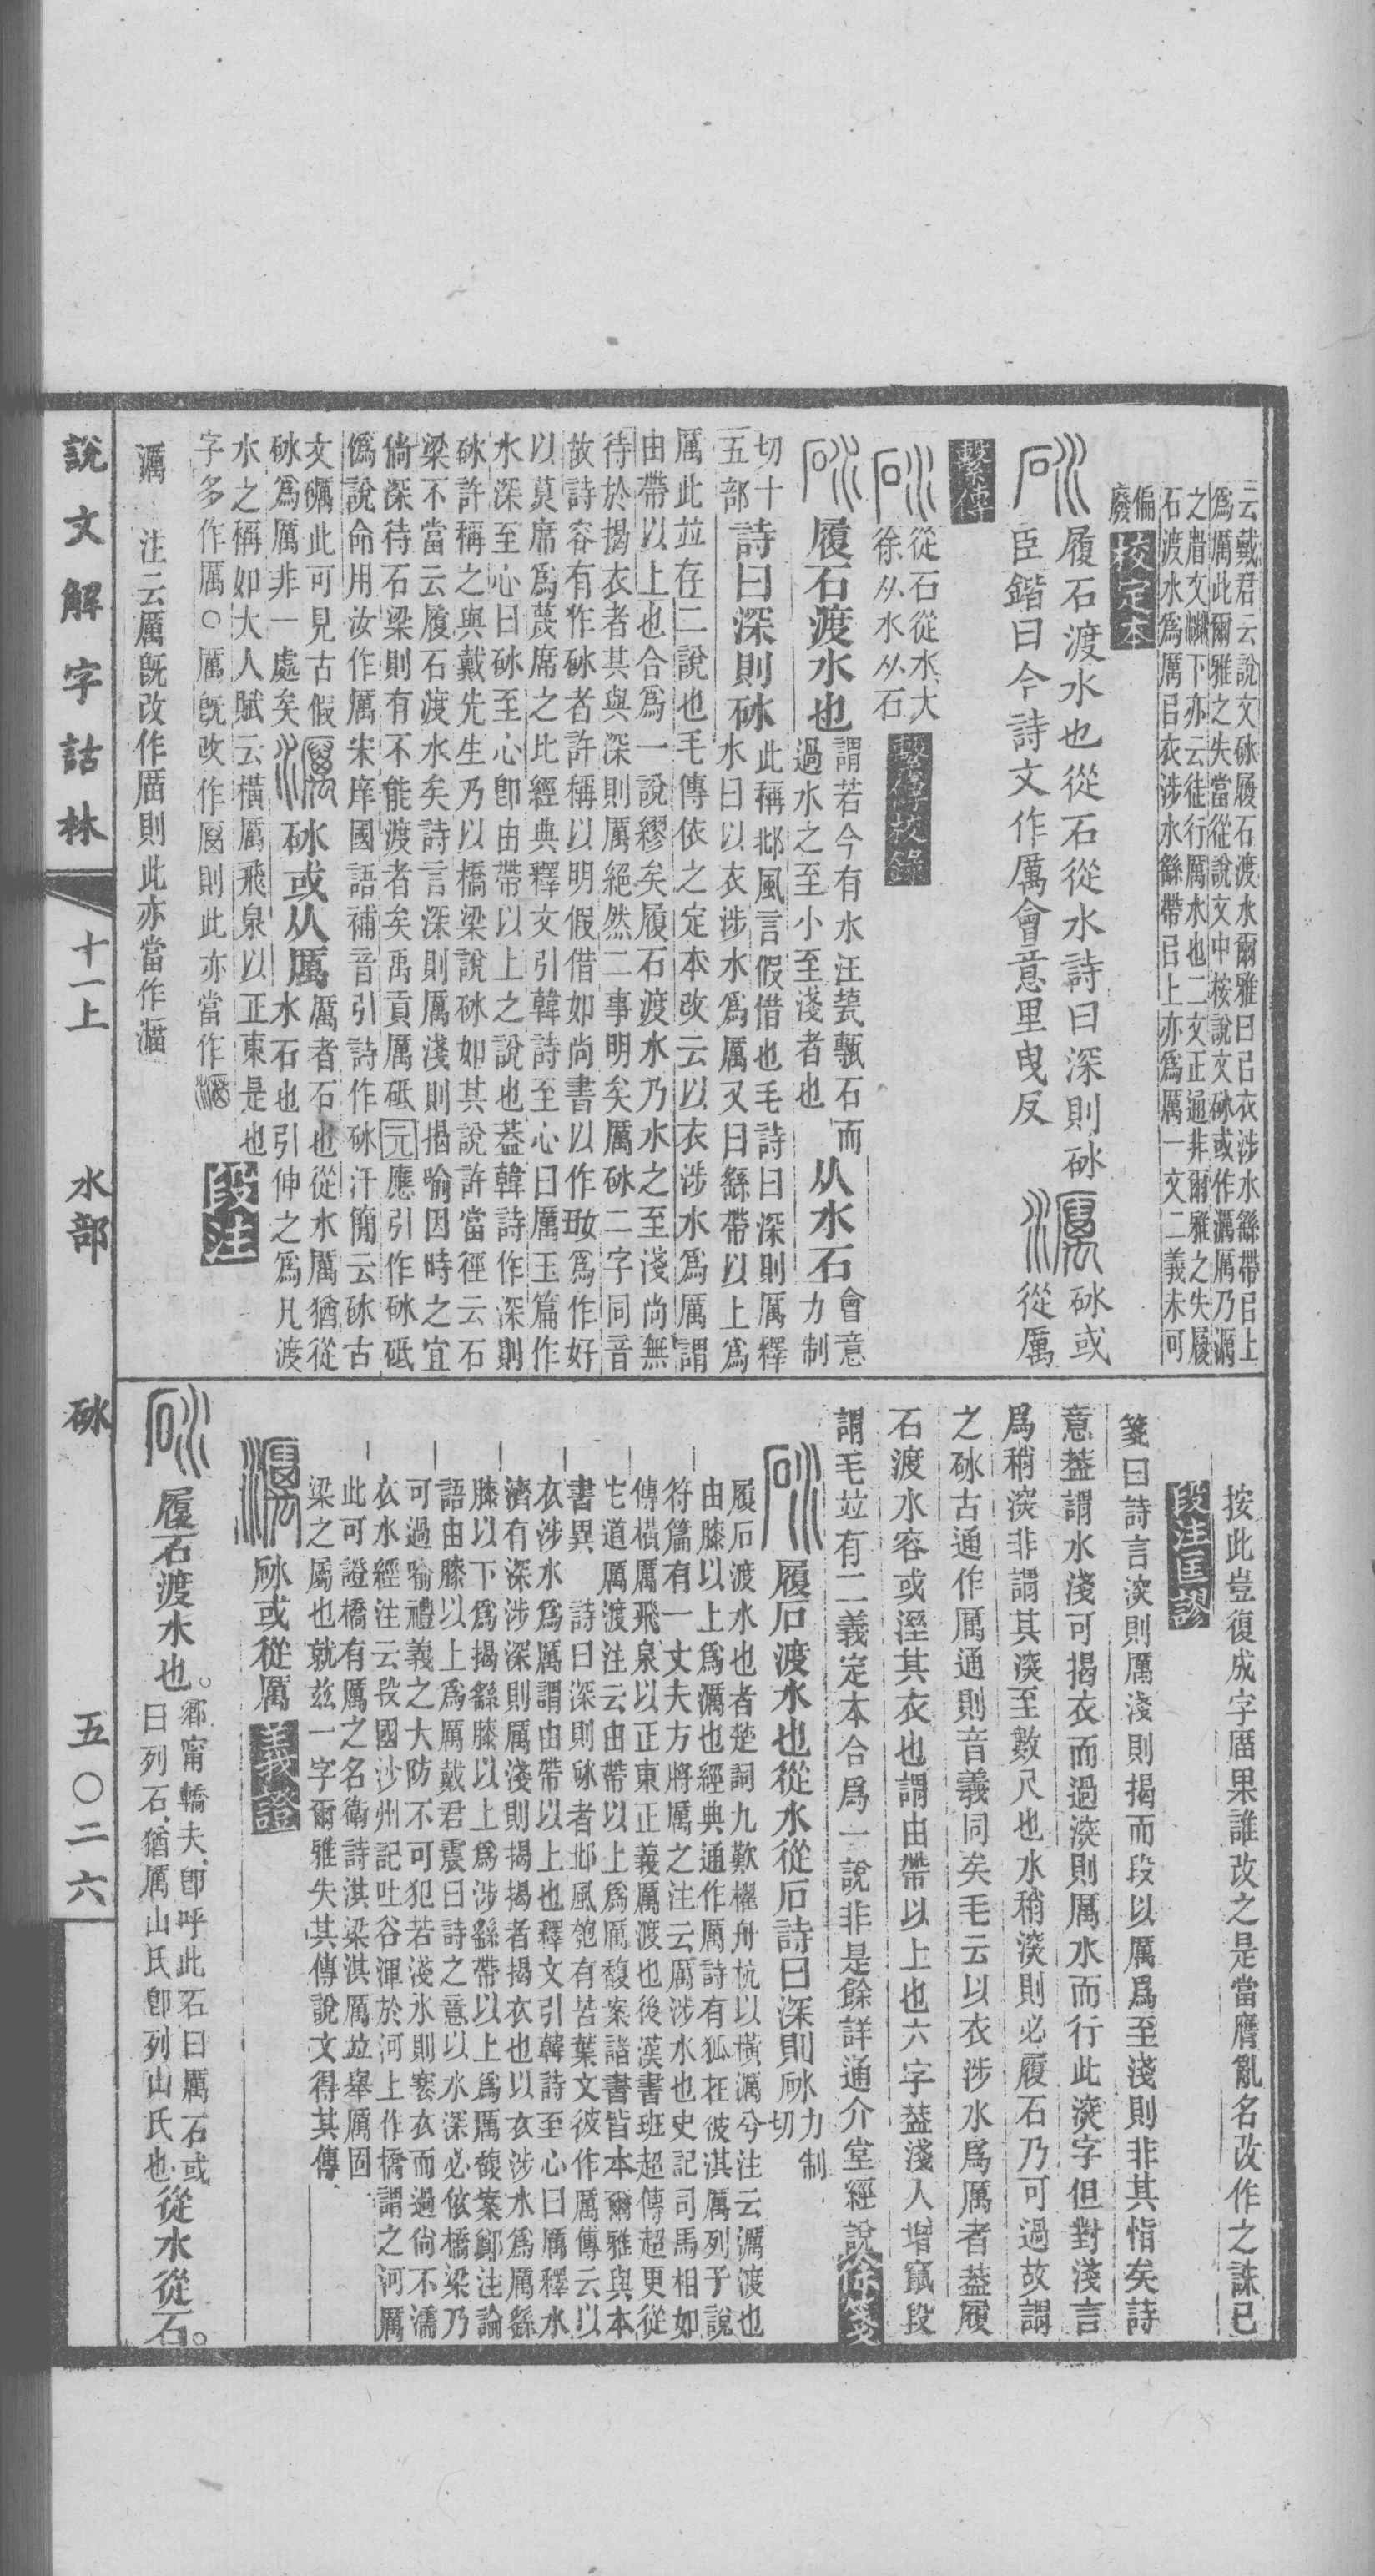 云戴君云說文砅履石渡水爾雅曰㠯衣涉水繇帶㠯上
爲厲此爾雅之失當從說文中按說文砅或作濿厲乃濿
之㫺文𤄷下亦云徒行厲水也二文正通非爾雅之失履
石渡水爲厲㠯衣涉水繇帶㠯上亦爲厲一文二義未可
偏
廢
校定本
履石渡水也從石從水詩曰深則砅
砅或
從厲
臣鍇曰今詩文作厲會意里曳反
繫傳
從石從水大
徐从水从石
繫傳校錄
履石渡水也
謂若今有水汪甃甎石而
過水之至小至淺者也
从水石
會意
力制
切十
五部
詩曰深則砅
此稱邶風言假借也毛詩曰深則厲釋
水曰以衣涉水爲厲又曰繇帶以上爲
厲此竝存二說也毛傳依之定本改云以衣涉水爲厲謂
由帶以上也合爲一說繆矣履石渡水乃水之至淺尚無
待於揭衣者其與深則厲絕然二事明矣厲砅二字同音
故詩容有作砅者許稱以明假借如尚書以作𡚽爲作好
以莫席爲蔑席之比經典釋文引韓詩至心曰厲玉篇作
水深至心曰砅至心卽由帶以上之說也葢韓詩作深則
砅許稱之與戴先生乃以橋梁說砅如其說許當徑云石
梁不當云履石渡水矣詩言深則厲淺則揭喻因時之宜
倘深待石梁則有不能渡者矣禹貢厲砥元應引作砅砥
僞說命用汝作厲宋庠國語補音引詩作砅汗簡云砅古
文礪此可見古假
砅爲厲非一處矣
砅或从厲
厲者石也從水厲猶從
水石也引伸之爲凡渡
水之稱如大人賦云橫厲飛泉以正東是也
字多作厲○厲旣改作𠪇則此亦當作
段注
濿 注云厲旣改作𠪇則此亦當作𤃬
按此豈復成字𠪇果誰改之是當膺亂名改作之誅已
段注匡謬
箋曰詩言深則厲淺則揭而段以厲爲至淺則非其恉矣詩
意葢謂水淺可揭衣而過深則厲水而行此深字但對淺言
爲稍深非謂其深至數尺也水稍深則必履石乃可過故謂
之砅古通作厲通則音義同矣毛云以衣涉水爲厲者葢履
石渡水容或溼其衣也謂由帶以上也六字葢淺人增竄段
謂毛竝有二義定本合爲一說非是餘詳通介堂經說
徐箋
履石渡水也從水從石詩曰深則砅
力制
切
履石渡水也者楚詞九歎櫂舟杭以橫濿兮注云濿渡也
由膝以上爲濿也經典通作厲詩有狐在彼淇厲列子說
符篇有一丈夫方將厲之注云厲涉水也史記司馬相如
傳橫厲飛泉以正東正義厲渡也後漢書班超傳超更從
它道厲渡注云由帶以上爲厲馥案諸書皆本爾雅與本
書異 詩曰深則砅者邶風匏有苦葉文彼作厲傳云以
衣涉水爲厲謂由帶以上也釋文引韓詩至心曰厲釋水
濟有深涉深則厲淺則揭揭者揭衣也以衣涉水爲厲繇
膝以下爲揭繇膝以上爲涉繇帶以上爲厲馥案鄭注論
語由膝以上爲厲戴君震曰詩之意以水深必依橋梁乃
可過喻禮義之大防不可犯若淺水則褰衣而過尙不濡
衣水經注云段國沙州記吐谷渾於河上作橋謂之河厲
此可證橋有厲之名衛詩淇梁淇厲竝舉厲固
梁之屬也就兹一字爾雅失其傳說文得其傳
砅或從厲
義證
履石渡水也。
鄉甯轎夫卽呼此石曰厲石或
曰列石猶厲山氏卽列山氏也
從水從石。
說文解字詁林
十一上
水部
砅
五〇二六